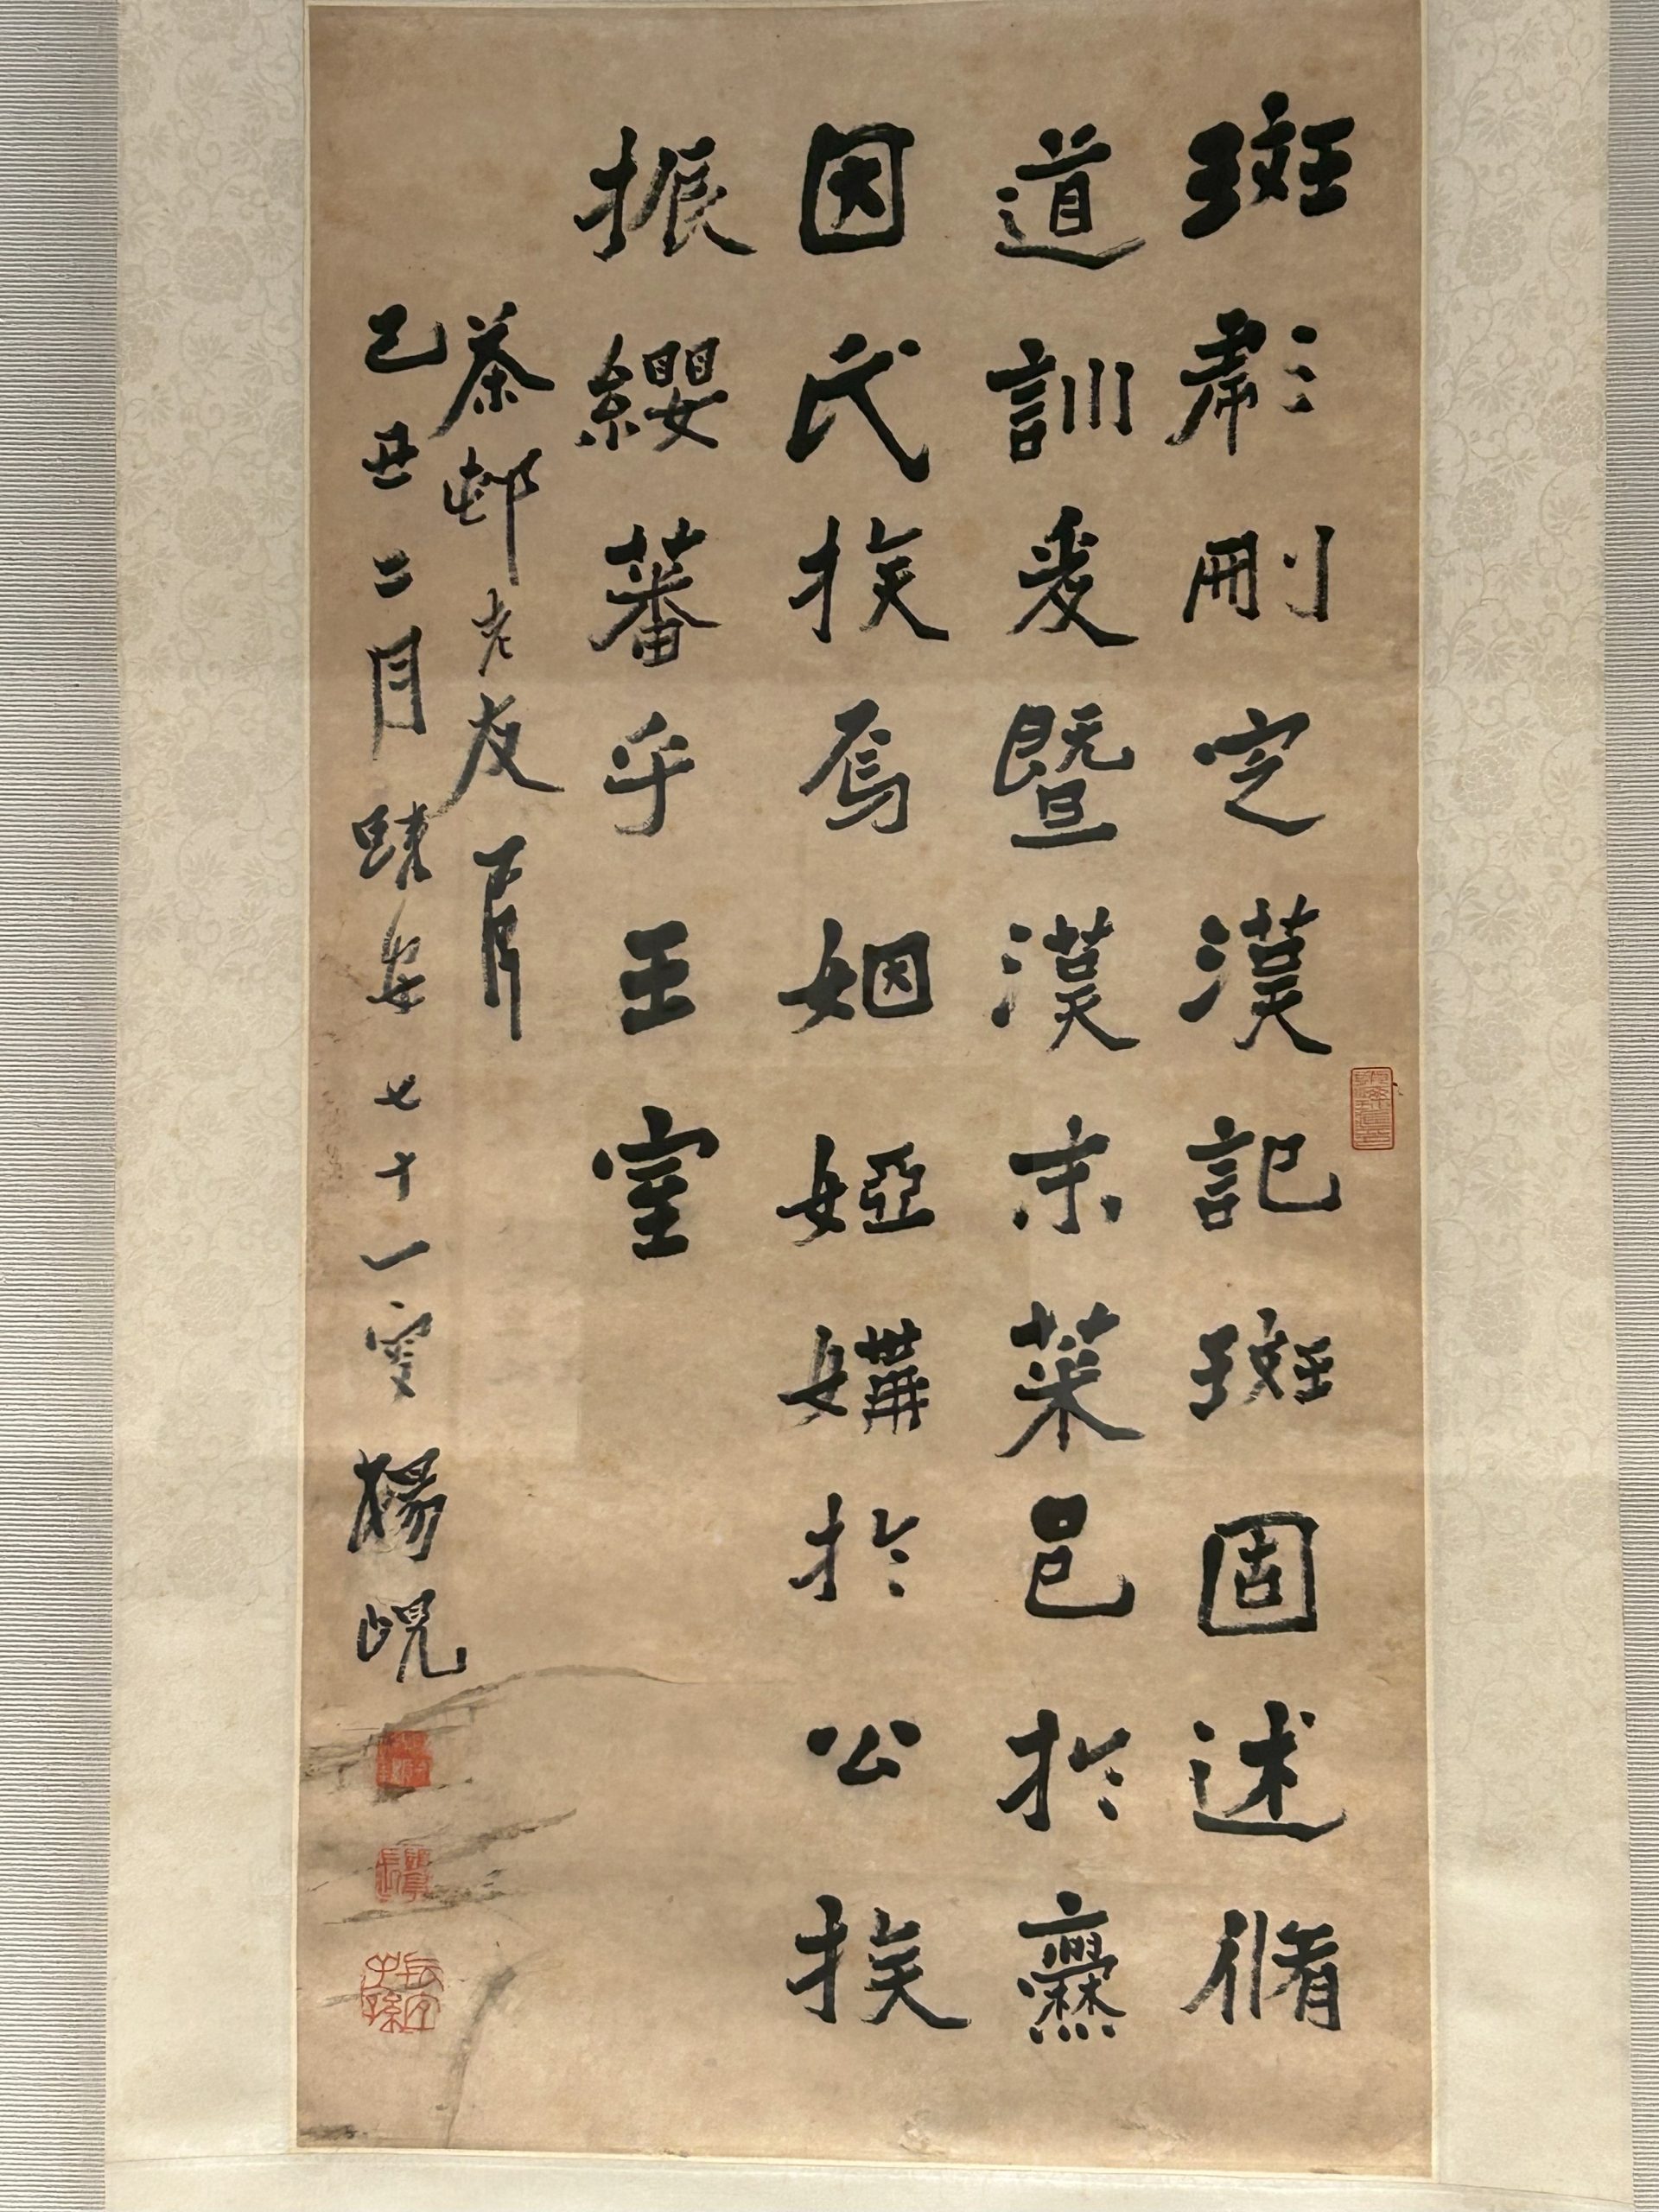 斑彪刪定漢記斑固述脩
道訓爰暨漢末菜邑於爨
因氏族焉姻婭媾於公族
振纓蕃乎王室
茶邨老友屬
己丑二月七十一叟楊峴
長宜子孫